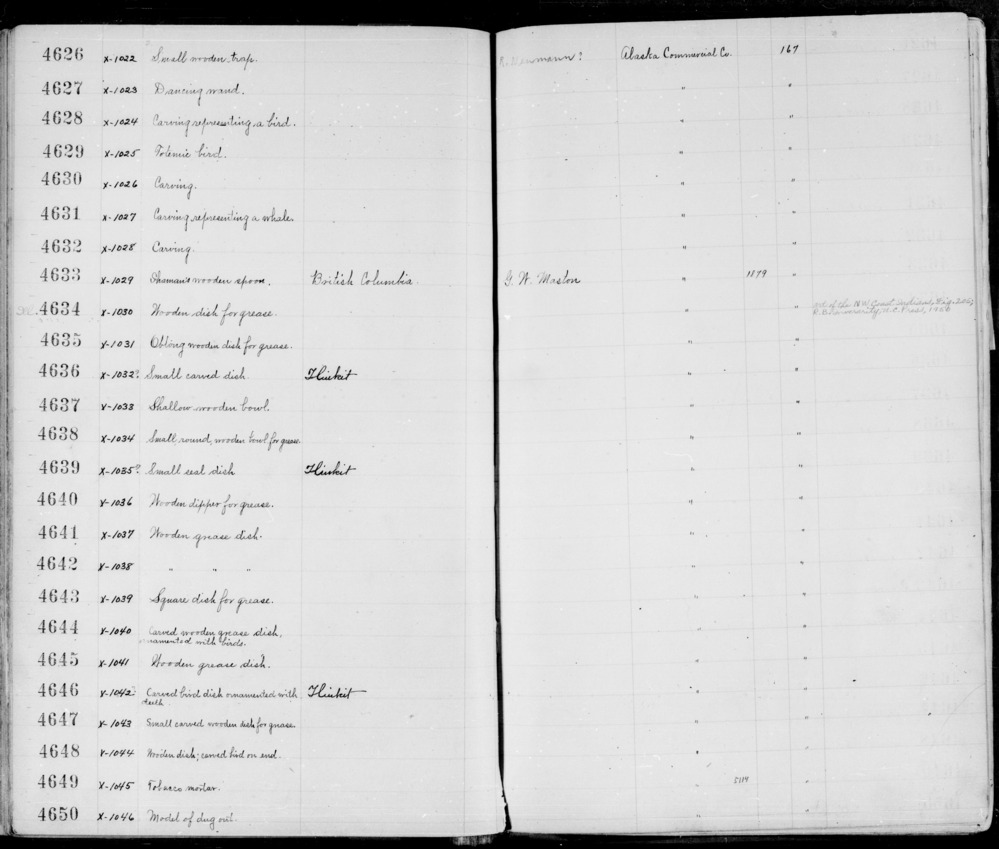 4626 X-1022 Small wooden trap. Neumann? Alaska Commercial Co. 167
4627 X-1023 Dancing wand. " "
4628 X-1024 Carving representing a bird. " "
4629 X-1025 Totemic bird. " "
4630 X-1026 Carving. " "
4631 X-1027 Carving representing a whale. " "
4632 X-1028 Carving. " "
4633 X-1029 Shaman's wooden spoon. British Columbia. G. W. Maston " 1879 "
4634 X-1030 Wooden dish for grease. " " Art of the N W Coast Indians, Fig. 206,
R. B. Inverarity, U. C. Press, 1950
4635 X-1031 Oblong wooden dish for grease. " "
4636 X-1032? Small carved dish. Tlinkit " "
4637 X-1033 Shallow wooden bowl. " "
4638 X-1034 Small round, wooden bowl for grease. " "
4639 X-1035? Small seal dish Tlinkit " "
4640 X-1036 Wooden dipper for grease. " "
4641 X-1037 Wooden grease dish. " "
4642 X-1038 " " " " "
4643 X-1039 Square dish for grease. " "
4644 X-1040 Carved wooden grease dish,
ornamented with birds. " "
4645 X-1041 Wooden grease dish. " "
4646 X-1042? Carved bird dish ornamented with
teeth Tlinkit " "
4647 X-1043 Small carved wooden dish for grease. " "
4648 X-1044 Wooden dish; carved bird on end. " "
4649 X-1045 Tobacco mortar. " "
4650 X-1046 Model of dug out. " "